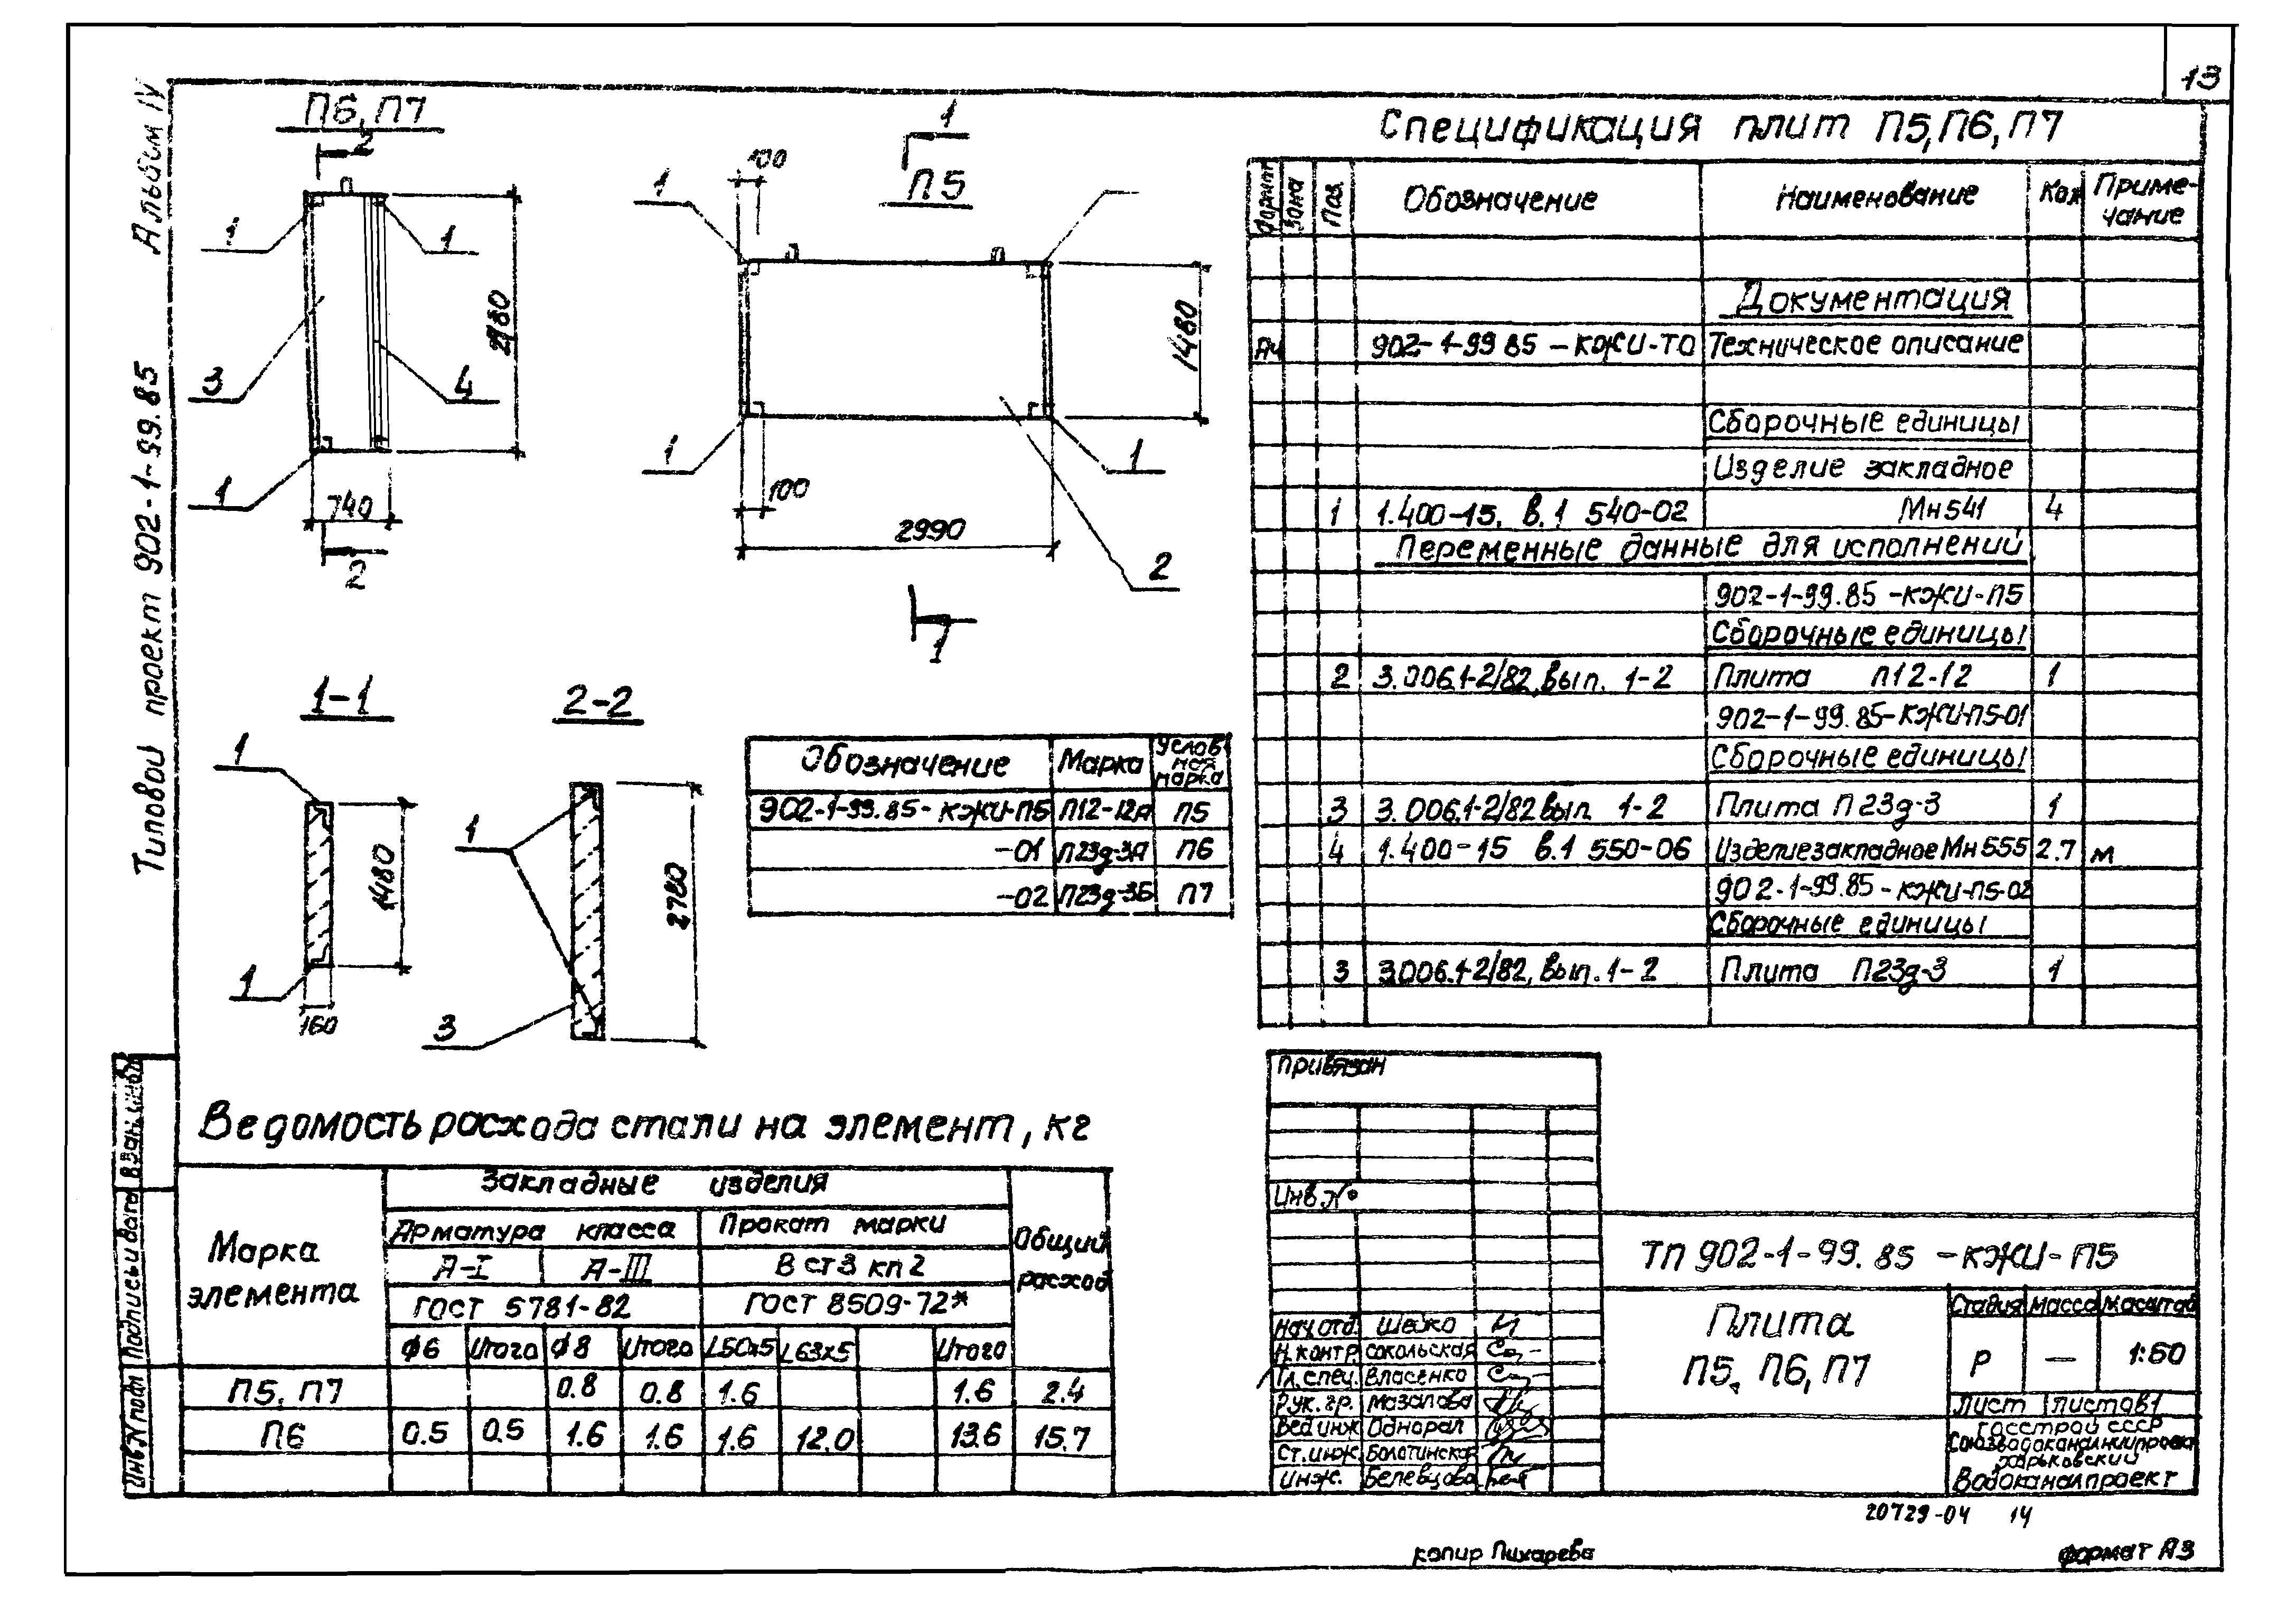 13
Альбом IV
Типовой проект 902-1-99.85
П6, П7
2
1
1
3
4
1
2980
740
2
1
П5
100
1
1480
1
1
100
2990
2
1
1-1
1
1480
1
160
2-2
1
2780
3
Обозначение Марка Условная марка
902-1-99.85-КЖИ-П5 П12-12а П5
-01 П23д-3А П6
-02 П23д-3Б П7
Спецификация плит П5, П6, П7
Формат Зона Поз. Обозначение Наименование Кол Примечание
Документация
А4 902-1-99 85 - КЖИ-ТО Техническое описание
Сборочные единицы
Изделие закладное
1 1.400-15. в.1 540-02 Мн541 4
Переменные данные для исполнений
902-1-99.85 -КЖИ-П5
Сборочные единицы
2 3.006.1-2/82, вып. 1-2 Плита П12-12 1
902-1-99.85-КЖИ-П5-01
Сборочные единицы
3 3.006.1-2/82 вып. 1-2 Плита П23д-3 1
4 1.400-15 в.1 550-06 Изделие закладное Мн555 2.7 м
902-1-99.85-КЖИ-П5-02
Сборочные единицы
3 3.006.1-2/82, вып. 1-2 Плита П23д-3 1
Ведомость расхода стали на элемент, кг
Марка элемента
Закладные изделия
Общий расход
Арматура класса Прокат марки
А-I А-III В ст3 кп2
ГОСТ 5781-82 ГОСТ 8509-72*
ф6 Итого ф8 Итого L50х5 L63х5 Итого
П5, П7 0.8 0.8 1.6 1.6 2.4
П6 0.5 0.5 1.6 1.6 1.6 12.0 13.6 15.7
Инв.N подл Подписи и дата Взам. инв.
Привязан
Инв.№
Нач.отд. Шейко
Н.контр. Сокольская
Гл.спец. Власенко
Рук.гр. Мазалова
Вед.инж Однорал
Ст.инж. Болотинская
Инж. Белевцова
ТП 902-1-99.85 -КЖИ-П5
Плита
П5, П6, П7
Стадия Масса Масштаб
Р — 1:60
Лист Листов 1
Госстрой СССР
Союзводоканалниипроект
Харьковский
Водоканалпроект
20729-04 14
копир Пихарева
формат А3